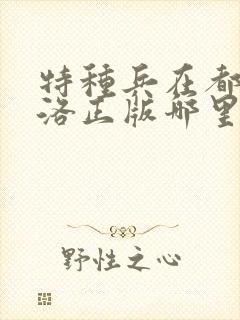 特種兵在都
洛正版哪里
野性之心